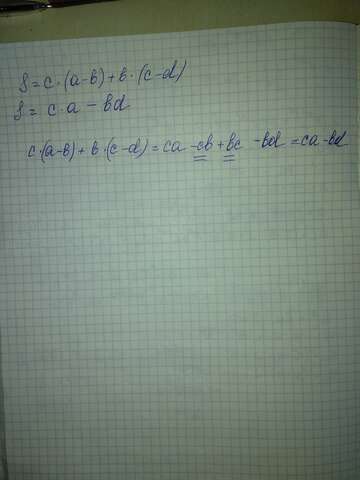 S = c·(a-b)+b·(c-d)
S = c·a - bd
c·(a-b)+b·(c-d) = ca - cb + bc - bd = ca - bd